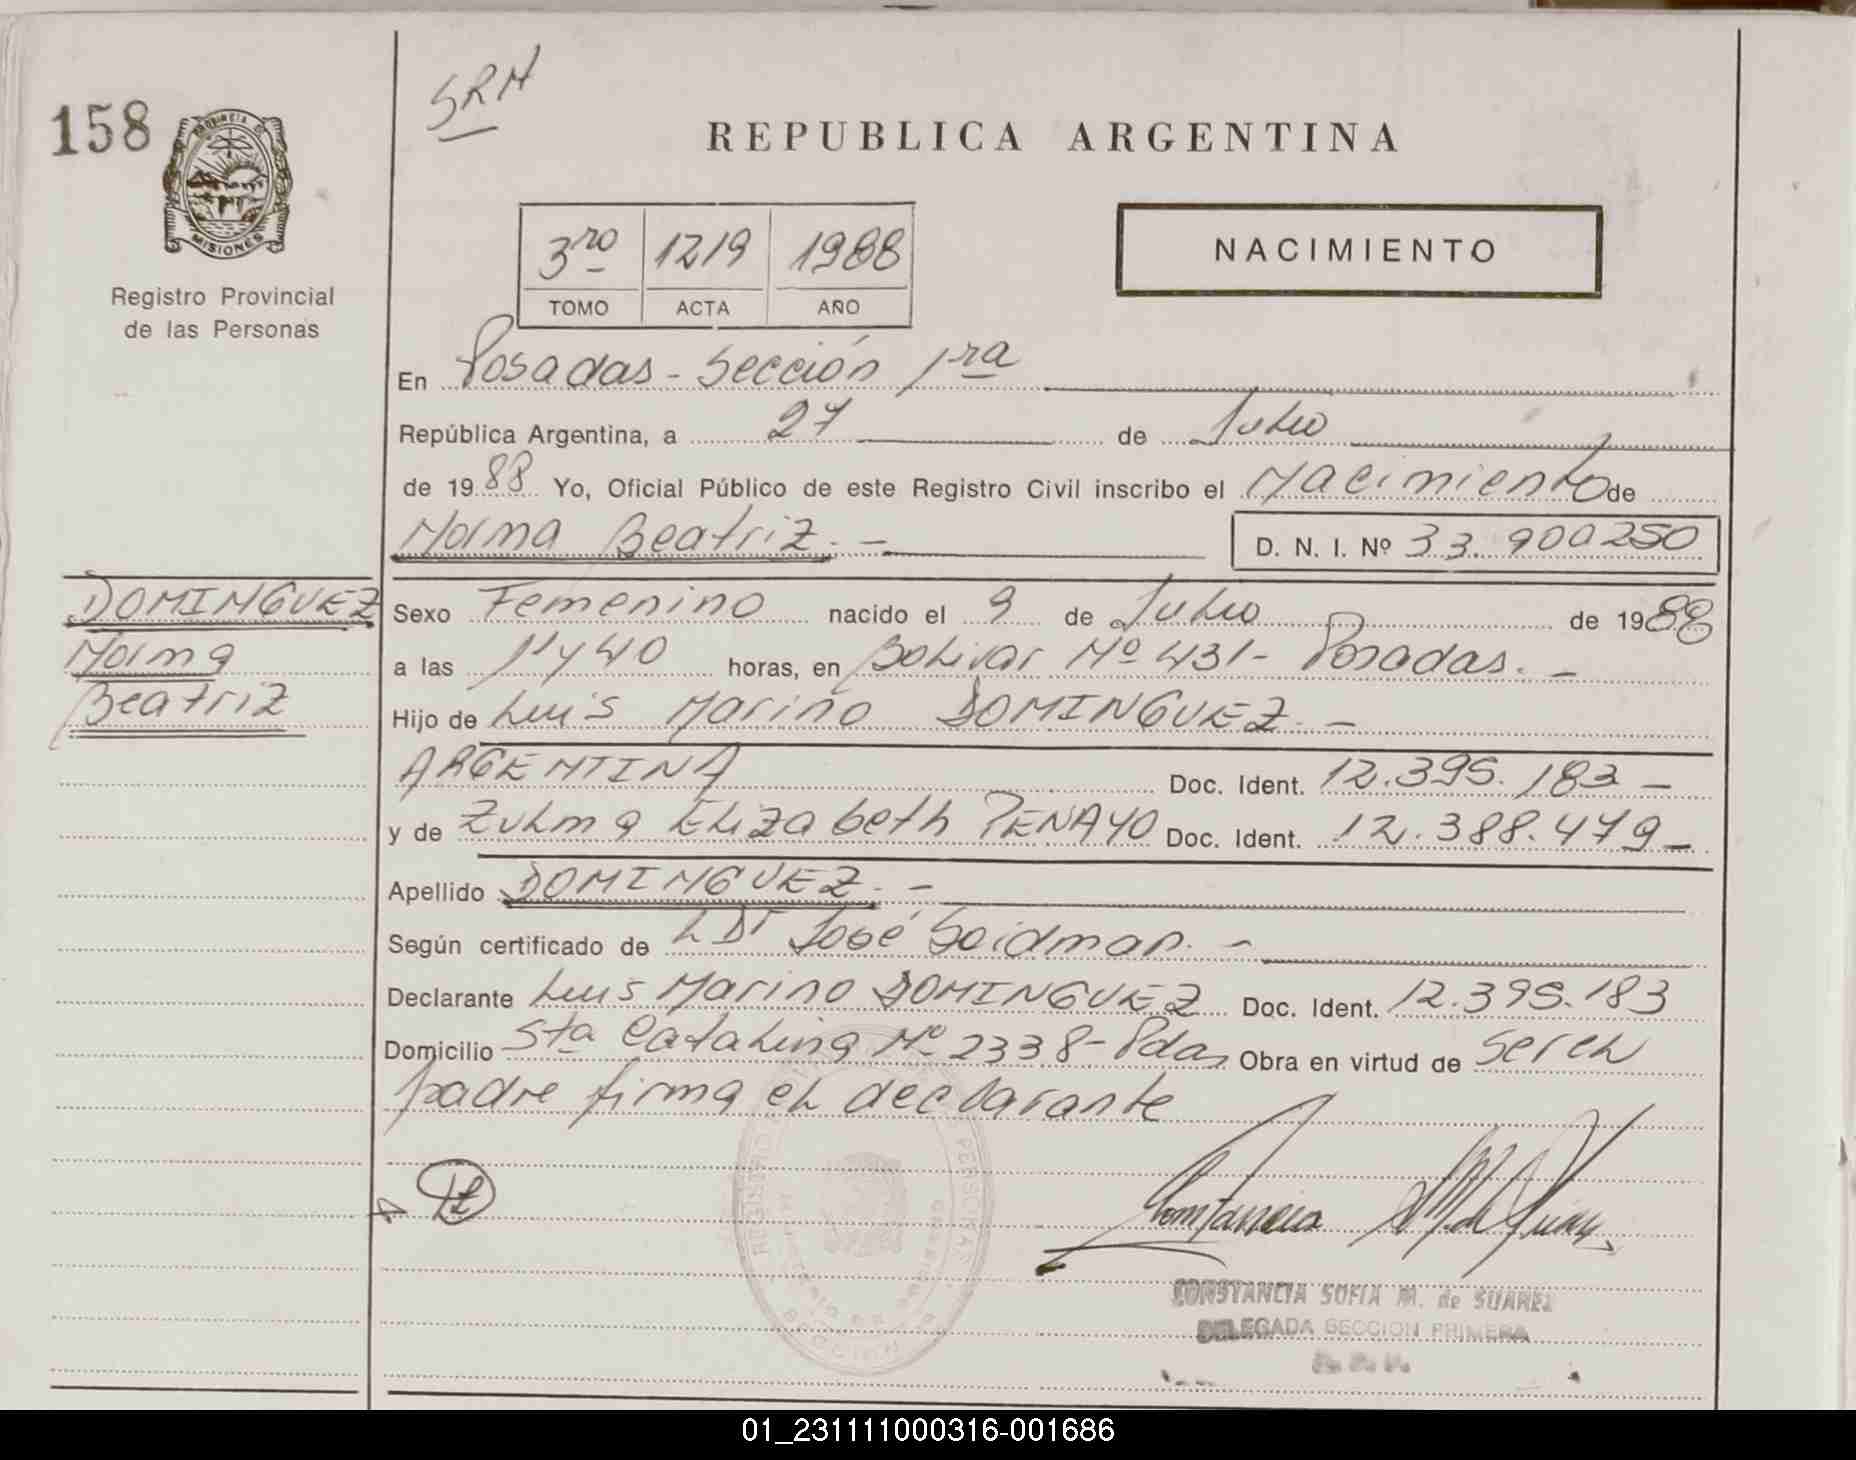 158
SRM
PROVINCIA DE
MISIONES
Registro Provincial
de las Personas
REPUBLICA ARGENTINA
3ro 1219 1988
TOMO ACTA AÑO
NACIMIENTO
En Posadas - Sección 1ra
República Argentina, a 27 de Julio
de 1988 Yo, Oficial Público de este Registro Civil inscribo el Nacimiento de
Norma Beatriz. - D. N. I. Nº 33.900250
DOMINGUEZ
Norma
Beatriz
Sexo Femenino nacido el 9 de Julio de 1988
a las 1 y 40 horas, en Bolivar Nº 431 - Posadas. -
Hijo de Luis Marino DOMINGUEZ. -
ARGENTINA Doc. Ident. 12.395.183 -
y de Zulma Elizabeth PENAYO Doc. Ident. 12.388.479 -
Apellido DOMINGUEZ. -
Según certificado de Dr José Soidman. -
Declarante Luis Marino DOMINGUEZ Doc. Ident. 12.395.183
Domicilio Sta Catalina Nº 2338 - Pdas Obra en virtud de ser el
padre firma el declarante
Constancia M. de Suarez
CONSTANCIA SOFIA M. de SUAREZ
DELEGADA SECCION PRIMERA
01_231111000316-001686